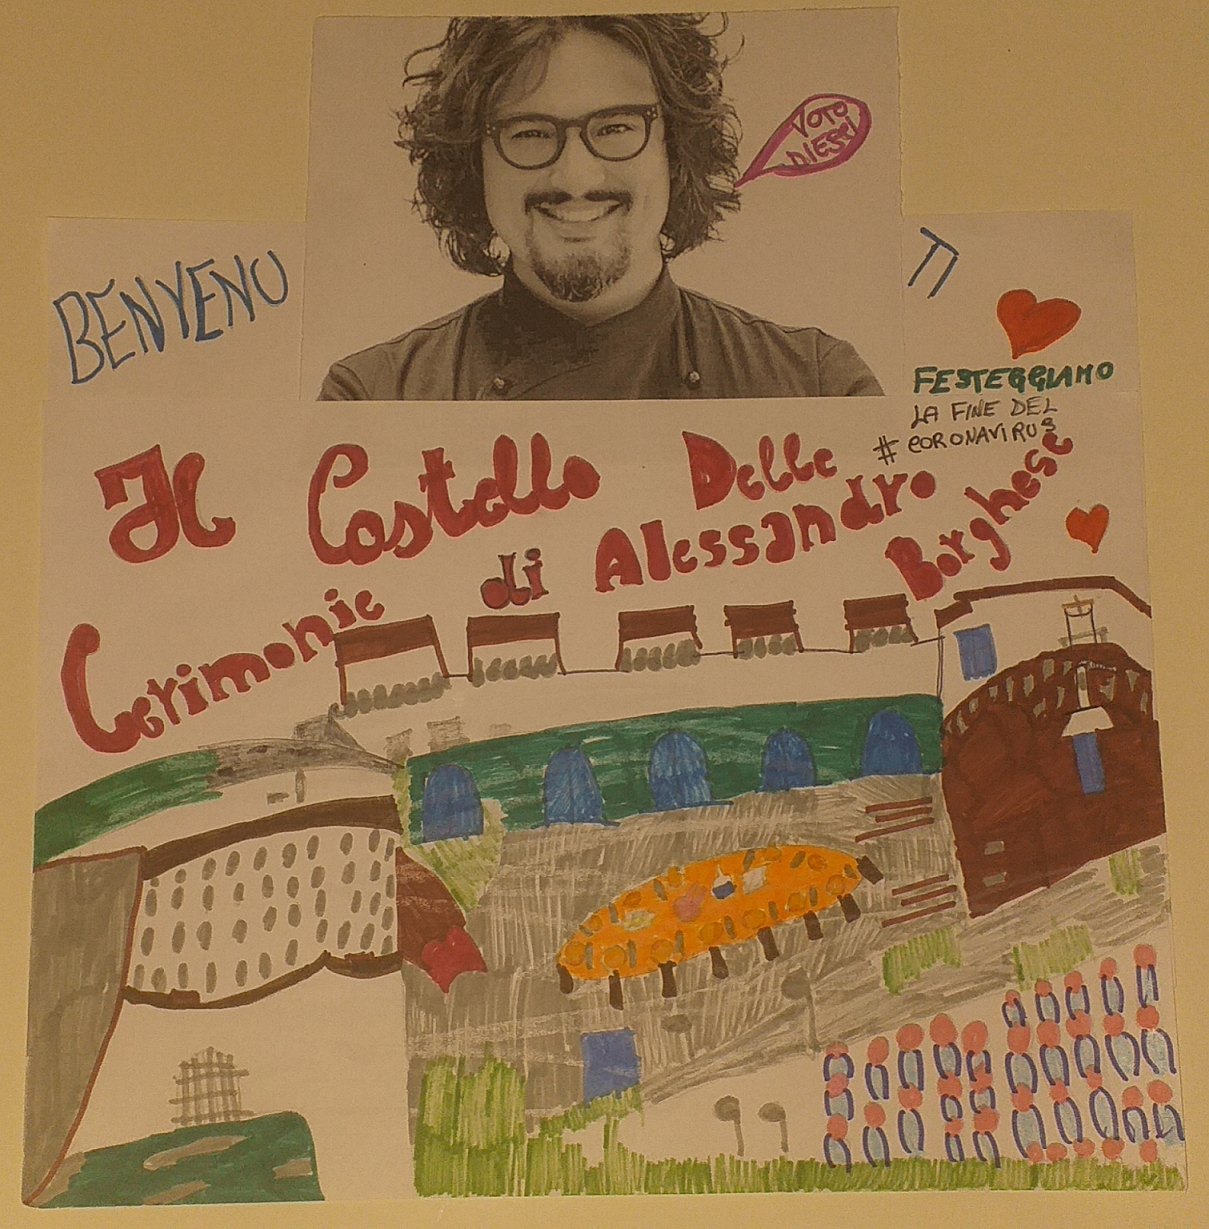 VOTO
DIESCI
BENVENU
TI
FESTEGGIAMO
LA FINE DEL
# CORONAVIRUS
Il Castello Delle
Cerimonie di Alessandro
Borghese